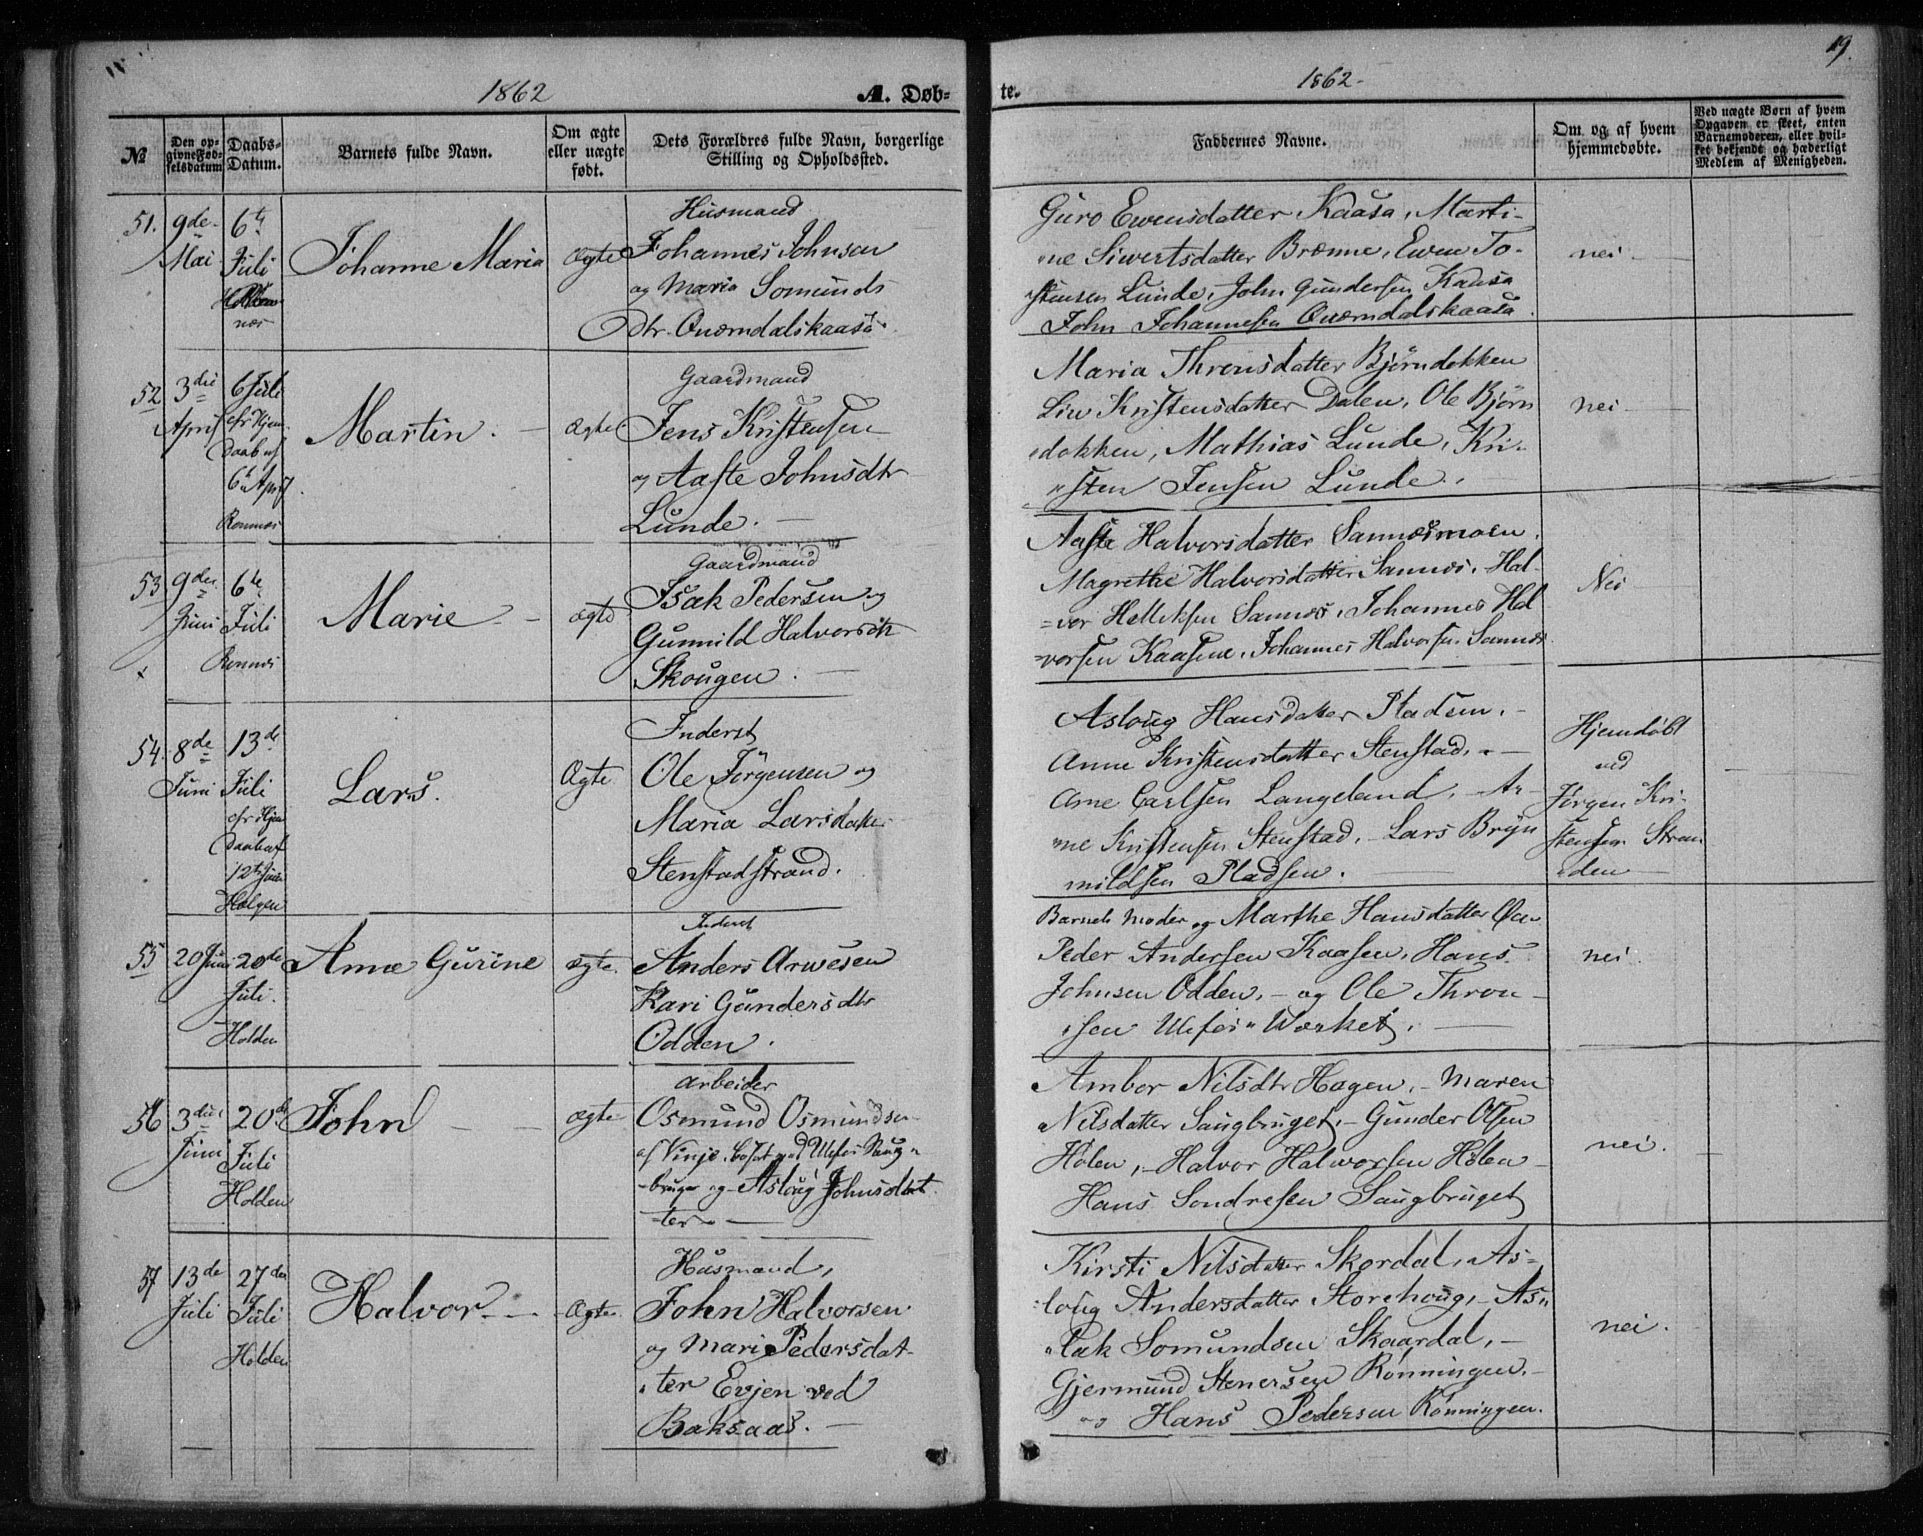 19.
1862
A. Døb-
te.
1862-
№
Den op-
givne Fød-
selsdatum
Daabs-
Datum.
Barnets fulde Navn.
Om ægte
eller uægte
født.
Dets Forældres fulde Navn, borgerlige
Stilling og Opholdssted.
Faddernes Navne.
Om og af hvem
hjemmedøbte.
Ved uægte Børn af hvem
Opgaven er skeet, enten
Barnemoderen, eller hvil-
ket bekjendt og hæderligt
Medlem af Menigheden.
51.
9de
Mai
6te
Juli
Johanne Maria
Ægte
Husmand
Johannes Johnsen
og Maria Somunds
Dtr. Qværndalskaasa.
Guro Ewensdatter Kaasa, Marti-
ne Siwertsdatter Brænne, Ewen To-
stensen Lunde, John Gundersen Kaasa
John Johannesen Qværndalskaasa
nei
52
3die
April
6 Juli
efr Hjem.
Daab af
6te April
Romnæs
Martin. -
Ægte.
Gaardmand
Jens Kristensen
og Aaste Johnsdtr
Lunde. -
Maria Thronsdatter Bjørndokken
Liw Kristensdatter Dalen, Ole Bjørn
dokken, Mathias Lunde, Kri-
sten Jensen Lunde.
nei
53
9de
Juni
6te
Juli
Romnæs
Marie -
ægte
Gaardmand
Isak Pedersen og
Gunnild Halvorsdtr
Skougen.
Aaste Halvorsdatter Sannæsmoen.
Magrethe Halvorsdatter Sannæs, Hal-
vor Helliksen Sannæs, Johannes Hal
vorsen Kaasene, Johannes Halvorsen Sannæs
Nei
54.
8de
Juni
13de
Juli
efr Hjem
Daab af
12te Juni
Helgen
Lars.
Ægte
Inderst
Ole Jørgensen og
Maria Larsdatter
Stenstadstrand.
Asloug Hansdatter Pladsen. -
Anne Kristensdatter Stenstad. -
Arne Carlsen Langeland. - Ar-
ne Kristensen Stenstad. - Lars Bryn
mildsen Pladsen.
Hjemdøbt
ved
Jørgen Kri-
stensen Stran
den
55
20 Juni
20de
Juli.
Holden
Anne Gurine
ægte.
Inderst
Anders Arwesen
Kari Gundersdtr
Odden.
Barnets Moder og Marthe Hansdatter
Peder Andersen Kaasen, Hans
Johnsen Odden, - og Ole Thron-
sen Ulefos-Værket.
nei.
56
3die
Juni
20de
Juli
Holden
John
ægte
Arbeider
Osmund Osmundsen
af Vinje, bosat ved Ulefos Saug-
bruge og Asloug Johnsdat
ter. -
Ambor Nilsdtr Hagen, - Maren
Nilsdatter Saugbruget, - Gunder Olsen
Holen, - Halvor Halworsen Holen
Hans Sondresen Saugbruget
nei.
57
13de
Juli
27de
Juli
Holden
Halvor -
Ægte
Husmand,
John Halvorsen
og Mari Pedersdat-
ter Evjen ved
Baksaas. -
Kirsti Nilsdatter Skordal, As-
loug Andersdatter Storehoug, - As-
lak Somundsen Skaardal, -
Gjermund Stenersen Rønningen. -
og Hans Pedersen Rønningen.
nei.